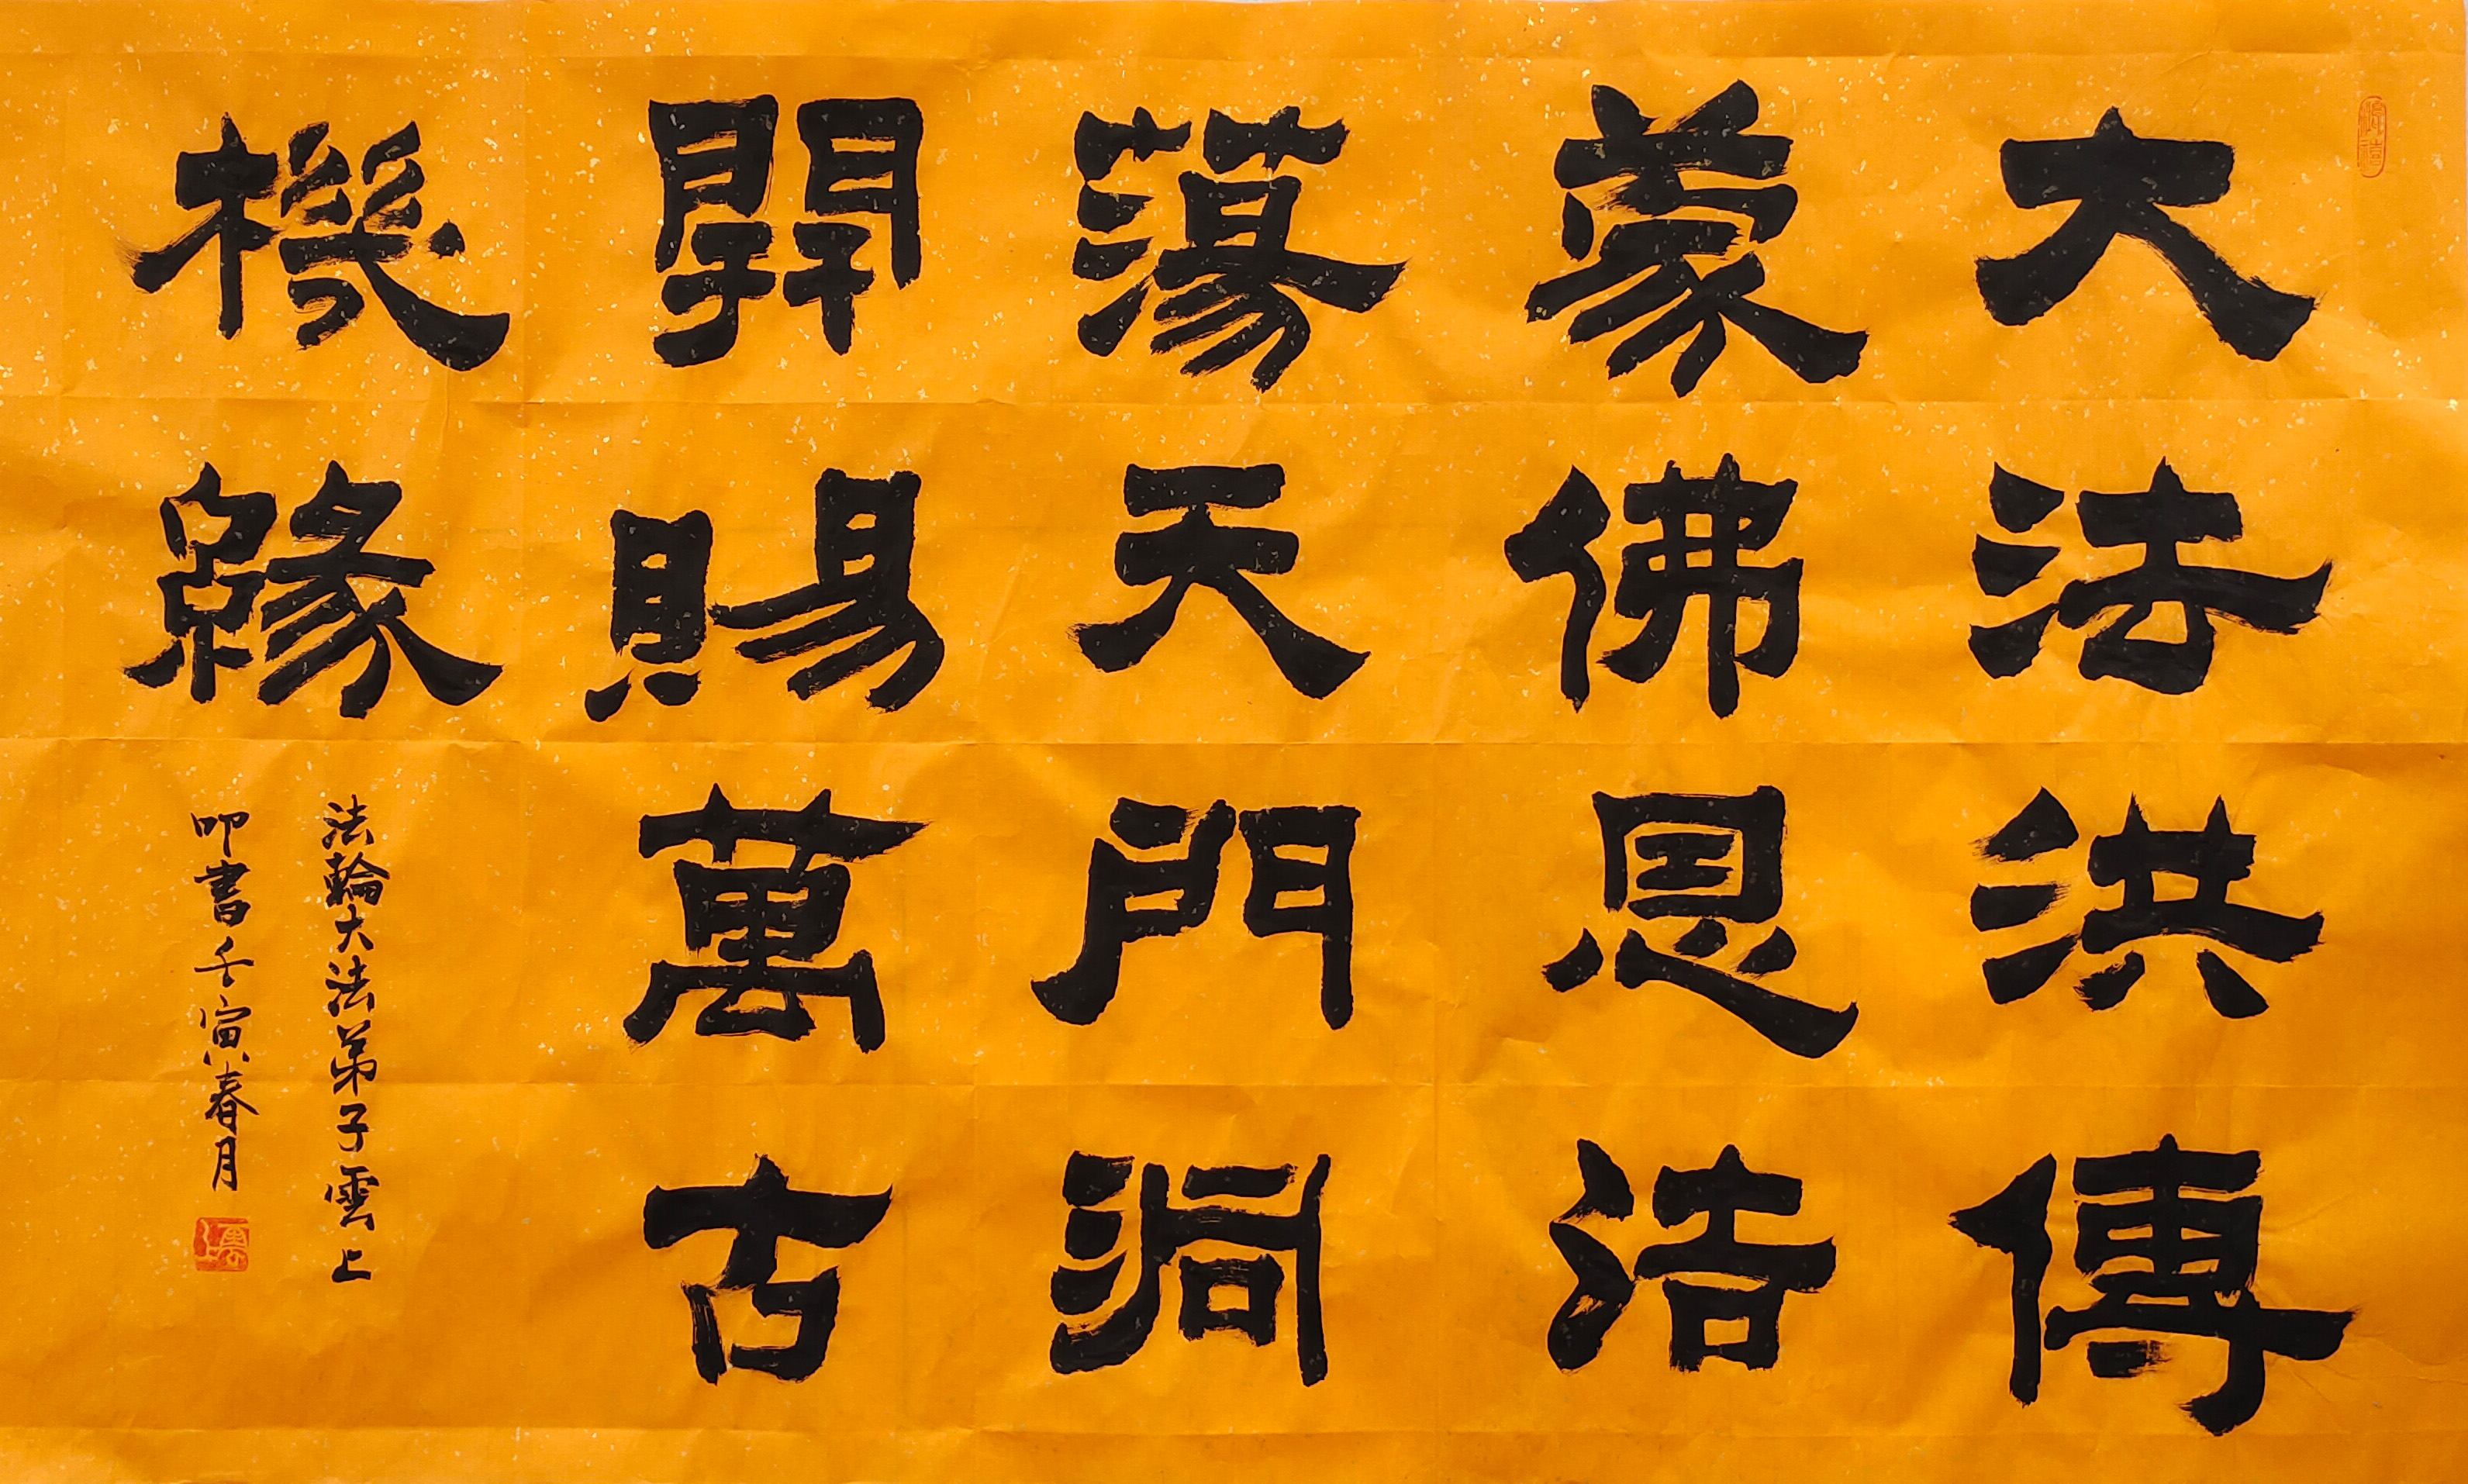 大法洪傳
蒙佛恩浩
蕩天門洞
開賜萬古
機緣
法輪大法弟子雲上
叩書壬寅春月